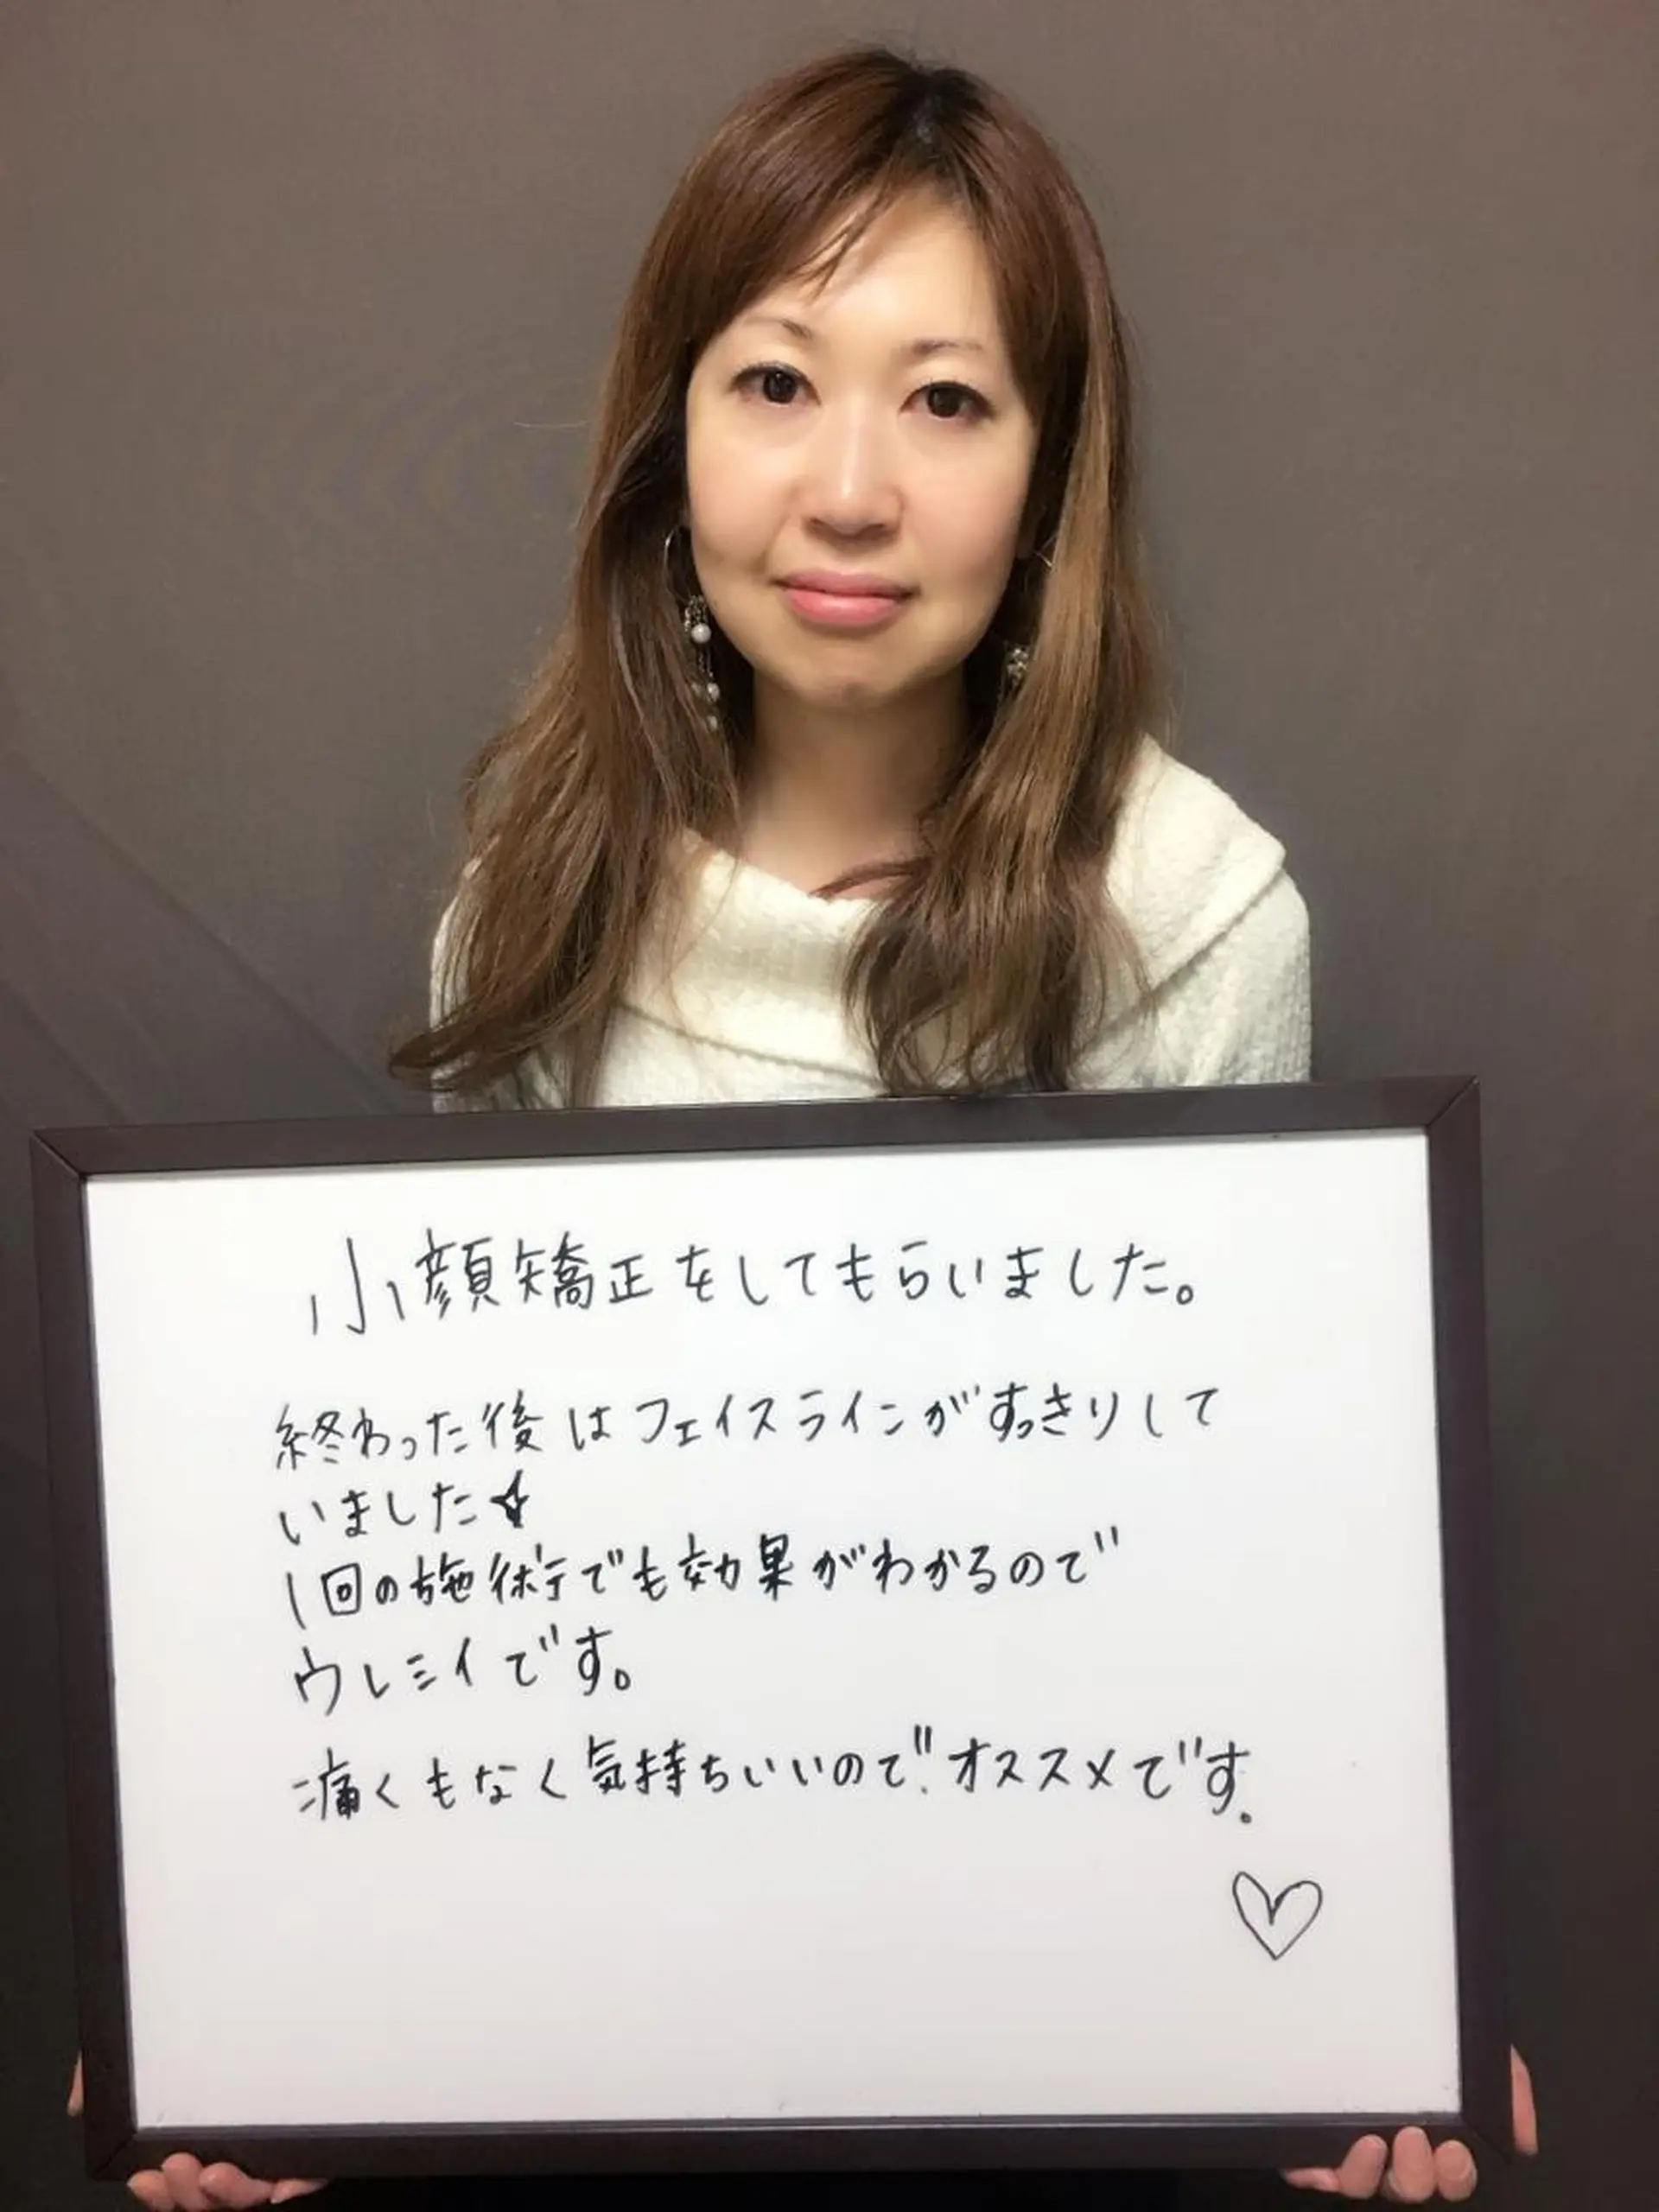 小顔矯正をしてもらいました。
終わった後はフェイスラインがすっきりして
いました★
1回の施術でも効果がわかるので
ウレシイです。
痛くもなく気持ちいいので、オススメです。
♡